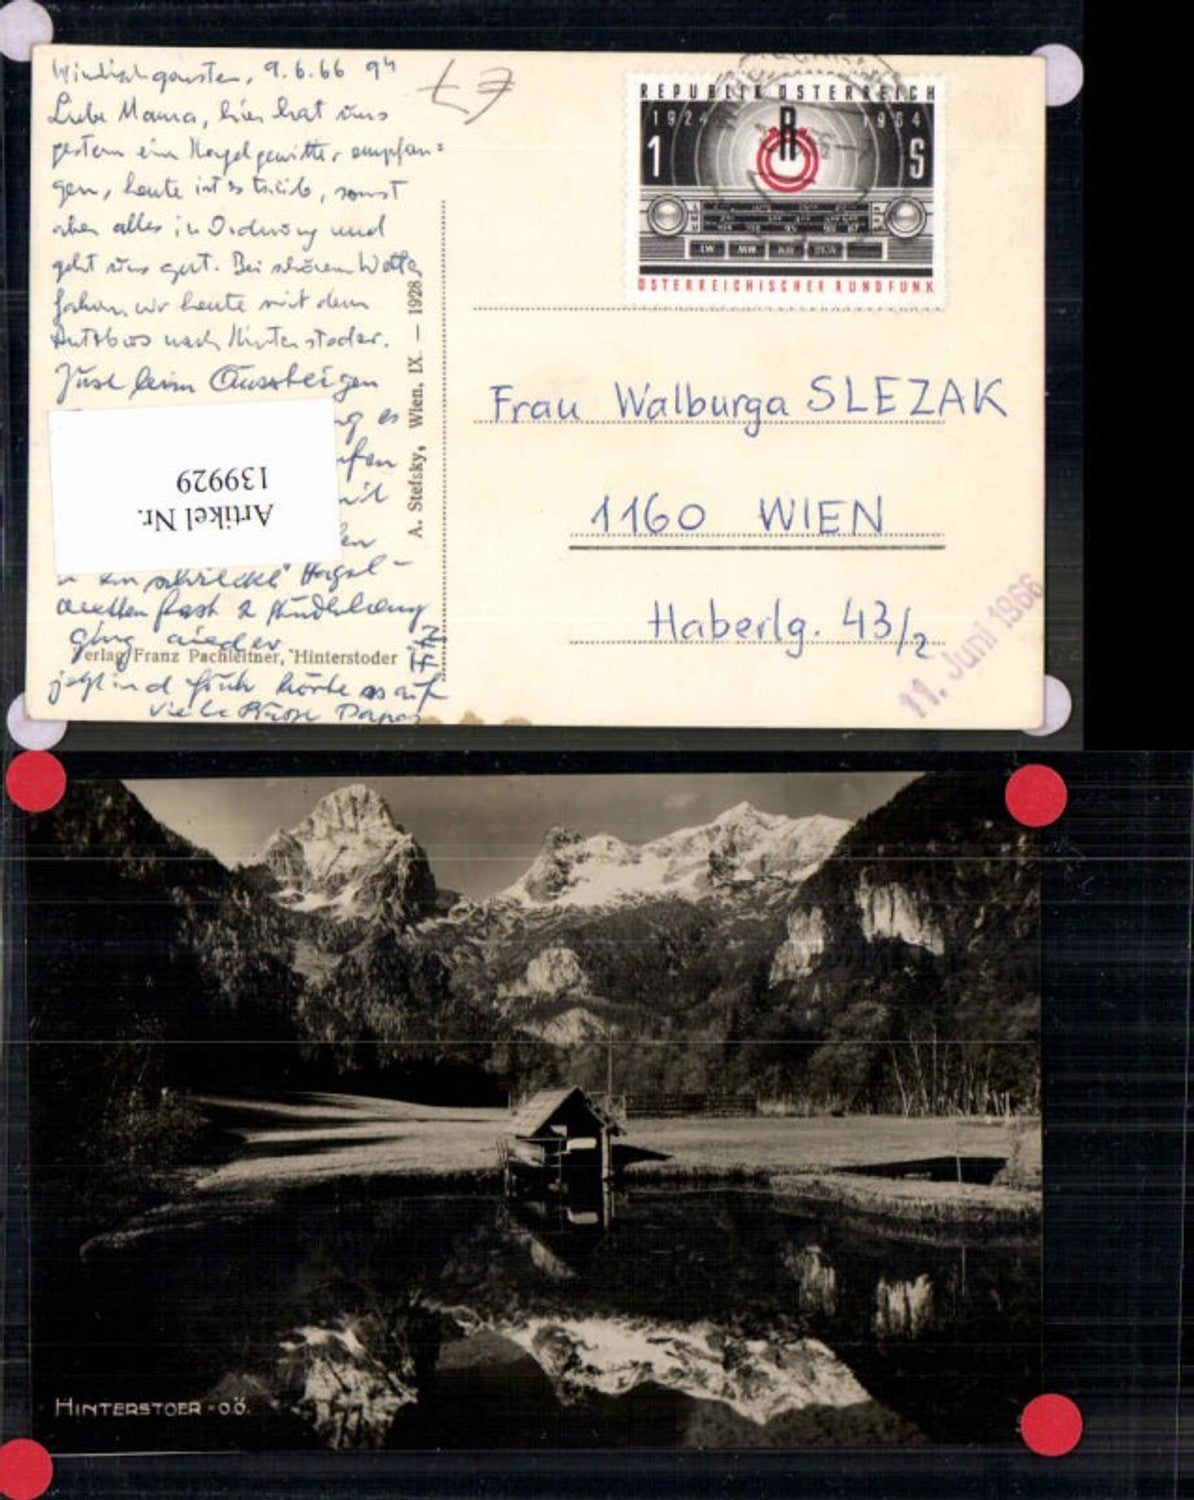 Windischgarsten, 9.6.66 9h
Liebe Mama, hier hat uns
gestern ein Hagelgewitter empfan=
gen, heute ist es trüb, sonst
aber alles in Ordnung und
geht uns gut. Bei schönem Wetter
fahren wir heute mit dem
Autobus nach Hinterstoder.
Just beim Aussteigen
es
Hagel-
fast 2
ging nieder
früh hörte es auf
viele Papa
Artikel Nr.
139929
Verlag Franz Pachleitner, Hinterstoder
A. Stefsky, Wien, IX. — 1928
REPUBLIK ÖSTERREICH
1924 1964
R
1 S
LW MW KW UKW
ÖSTERREICHISCHER RUNDFUNK
Frau Walburga SLEZAK
1160 WIEN
Haberlg. 43/2
11. Juni 1966
HINTERSTOER - OÖ.